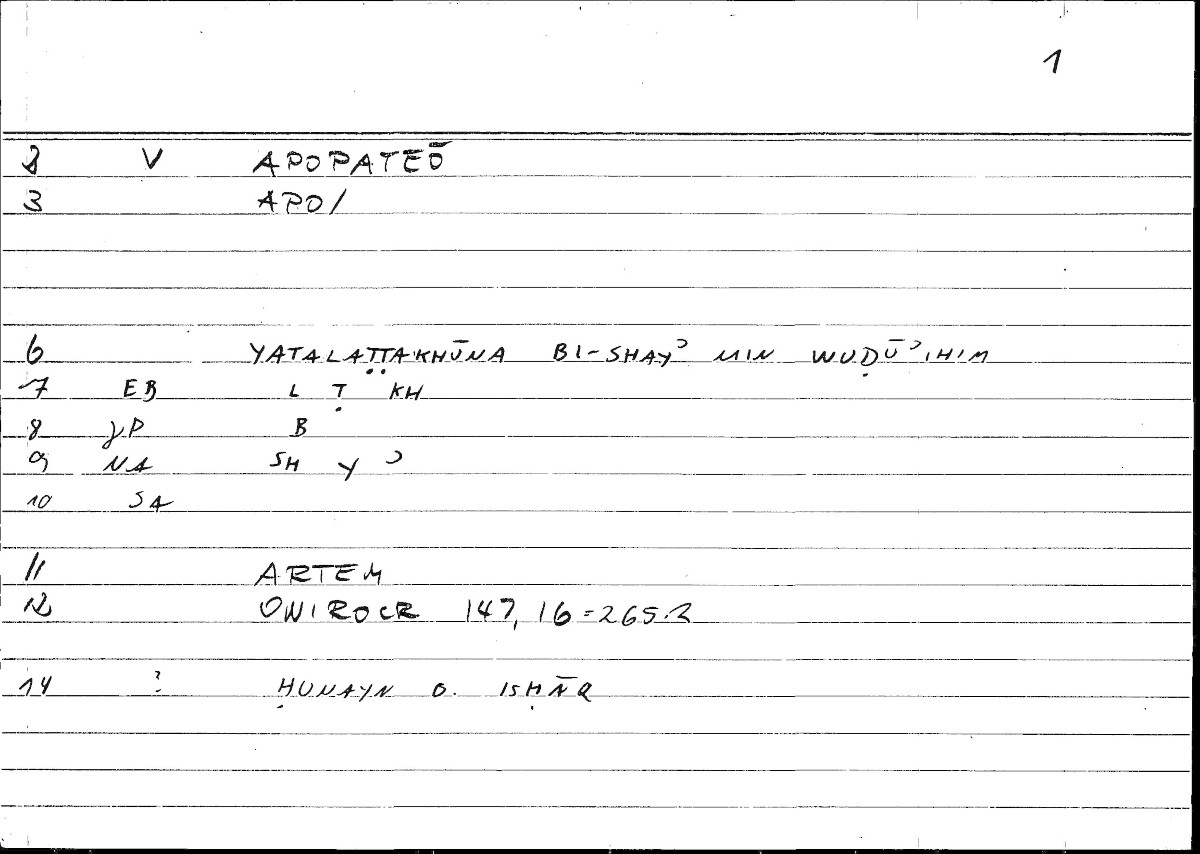 1
2 V APOPATEŌ
3 APO/
6 YATALAṬṬAKHŪNA BI-SHAYʾ MIN WUḌŪʾIHIM
7 EB L Ṭ KH
8 JP B
9 NA SH Y ʾ
10 SA
11 ARTEM
12 ONIROCR 147, 16=265.2
14 ? ḤUNAYN O. ISḤĀQ